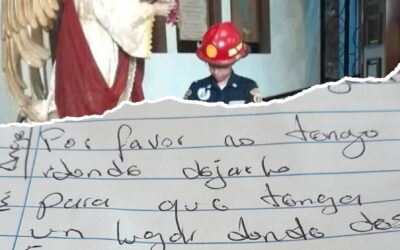 Por favor no tengo
donde dejarlo
para que tenga
un lugar donde des